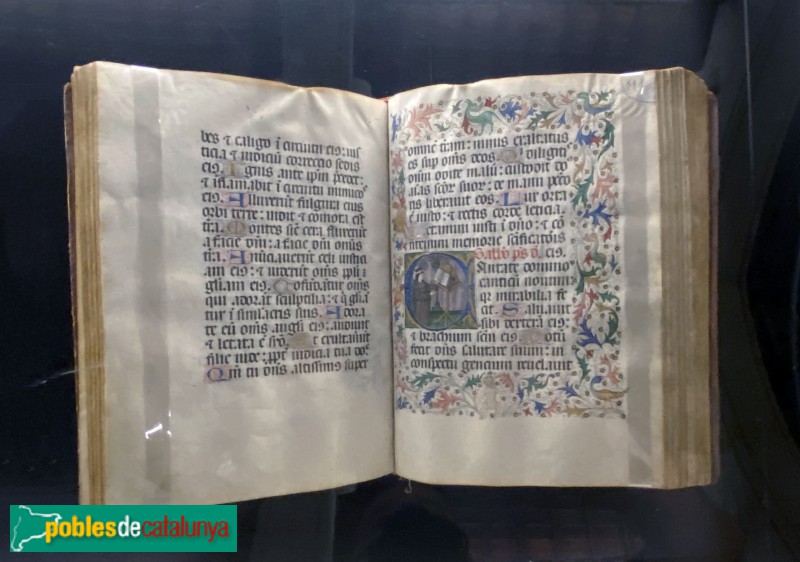 bes ⁊ caligo ī circuitu eiꝰ: ius
ticia ⁊ iudiciū correctio sedis
eiꝰ. Ignis ante ip̄m
⁊ īflamabit ī circuitu inimicos
eiꝰ. Alluxerūt fulgura eiꝰ
orbi terre: uidit ⁊ comota est
tr̄a. Montes sic̄ cera fluxerūt
a facie dn̄i: a facie dn̄i om̄is
tr̄a. Anūciauerūt celi iusticiā
eiꝰ: ⁊ uiderūt om̄s pp̄li
gl̄iam eiꝰ. Cōfūdātur om̄s
qui adorāt sculptilia: ⁊ q̄ gl̄iā
tur ī simulacris suis. Adora
te eū om̄s angli eiꝰ: audiuit
⁊ letata ē syō. Et exultauerūt
filie iude: ꝓpt̄ iudicia tua do.
Qm̄ tu dn̄s altissimꝰ super
omnē tr̄am: nimis exaltatus
es sup om̄s deos. Qui diligitis
dn̄m odite malū: custodit dn̄s
aīas sc̄oꝝ suoꝝ: de manu pctō
ris liberauit eos. Lux orta
ē iusto: ⁊ rectis corde leticia.
Letamini iusti ī dn̄o: ⁊ cō
fitemini memorie sc̄ificatiōis
eiꝰ.
Cantate domino
canticū nouum:
qꝛ mirabilia fe
cit. Saluauit
sibi dextera eiꝰ:
⁊ brachium sc̄m eiꝰ. Notū
fecit dn̄s salutare suum: in
conspectu gencium reuelauit
poblesdecatalunya